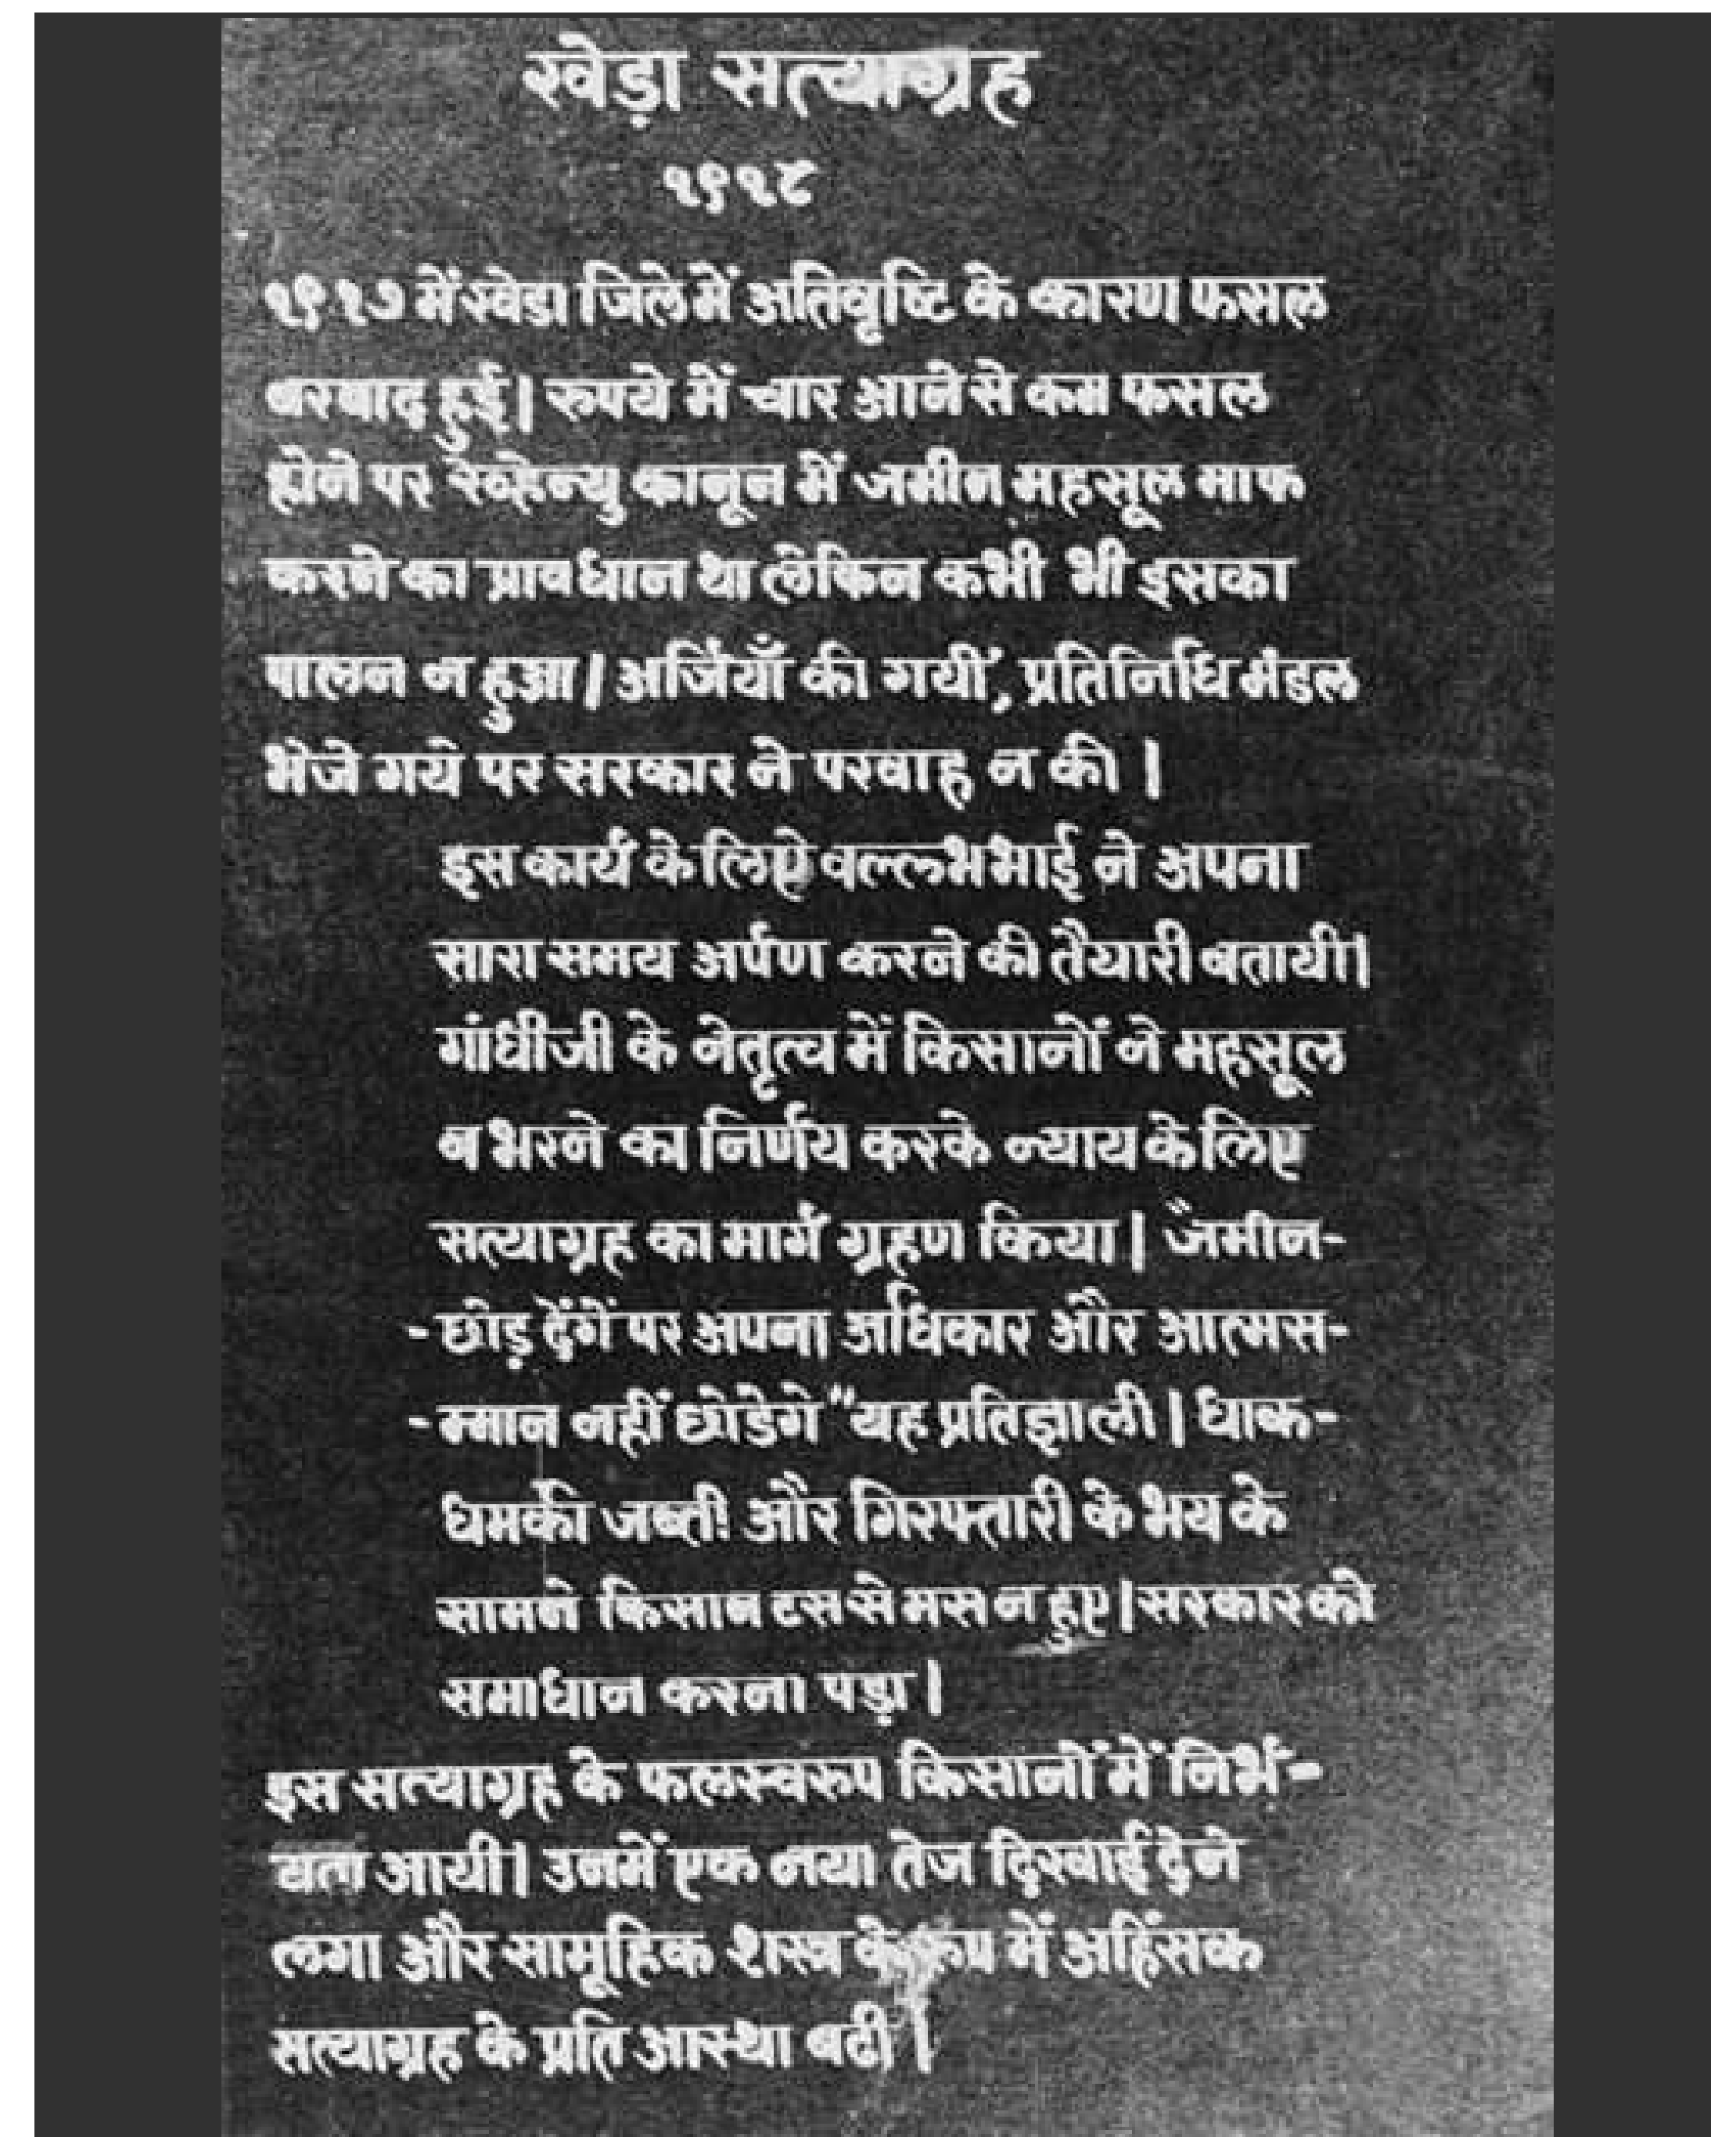 खेड़ा सत्याग्रह
१९१८
१९१७ में खेडा जिले में अतिवृष्टि के कारण फसल
बरबाद हुई। रुपये में चार आने से कम फसल
होने पर रेव्हेन्यु कानून में जमीन महसूल माफ
करने का प्रावधान था लेकिन कभी भी इसका
पालन न हुआ। अर्जियाँ की गयीं, प्रतिनिधि मंडल
भेजे गये पर सरकार ने परवाह न की।
इस कार्य के लिऐ वल्लभभाई ने अपना
सारा समय अर्पण करने की तैयारी बतायी।
गांधीजी के नेतृत्व में किसानों ने महसूल
न भरने का निर्णय करके न्याय के लिए
सत्याग्रह का मार्ग ग्रहण किया। "जमीन-
-छोड़ देंगें पर अपना अधिकार और आत्मस-
-म्मान नहीं छोडेगे" यह प्रतिज्ञा ली। धाक-
धमकी जब्ती और गिरफ्तारी के भय के
सामने किसान टस से मस न हुए। सरकार को
समाधान करना पड़ा।
इस सत्याग्रह के फलस्वरुप किसानों में निर्भ-
यता आयी। उनमें एक नया तेज दिखाई देने
लगा और सामूहिक शस्त्र के रूप में अहिंसक
सत्याग्रह के प्रति आस्था बढी।